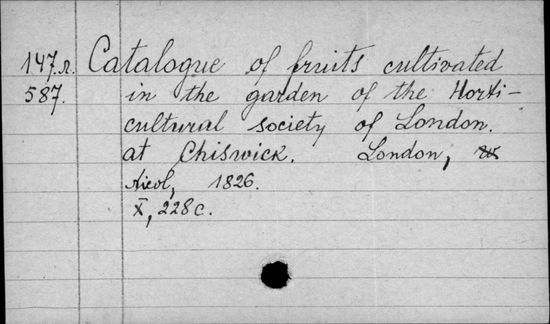 147.л. Catalogue of fruits cultivated
587. in the garden of the Horti-
cultural society of London.
at Chiswick. London,
Nicol, 1826.
X, 228 c.